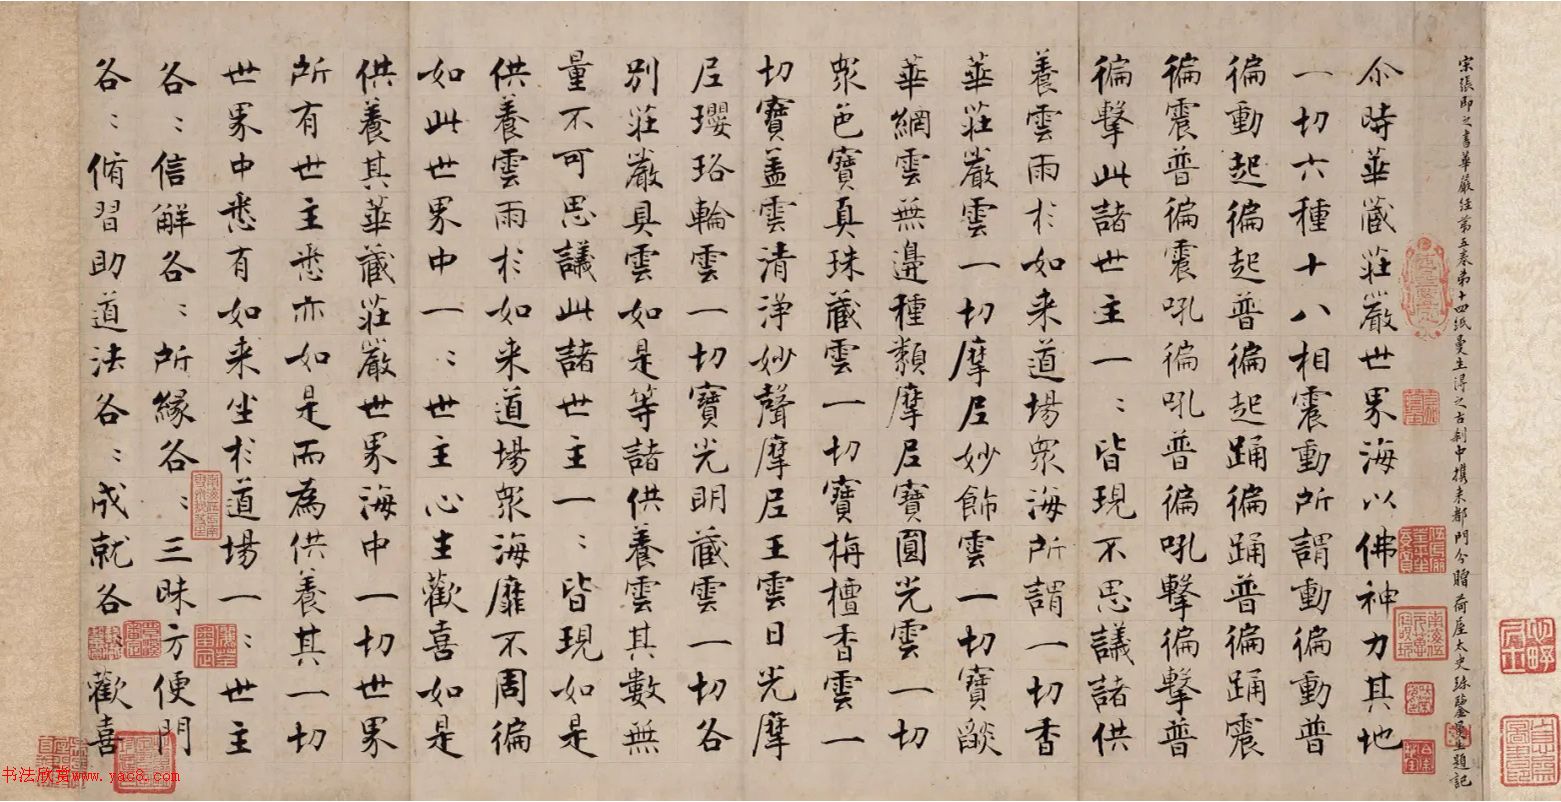 宋張即之書華嚴經第五卷第十四紙曼生得之古刹中攜来都門分贈荷屋太史珎曼生題記
尒時華藏莊嚴世界海以佛神力其地
一切六種十八相震動所謂動徧動普
徧動起徧起普徧起踊徧踊普徧踊震
徧震普徧震吼徧吼普徧吼擊徧擊普
徧擊此諸世主一〻皆現不思議諸供
養雲雨於如来道場衆海所謂一切香
華莊嚴雲一切摩尼妙飾雲一切寶燄
華網雲無邊種類摩尼寶圓光雲一切
衆色寶真珠藏雲一切寶栴檀香雲一
切寶盖雲清淨妙聲摩尼王雲日光摩
尼瓔珞輪雲一切寶光明藏雲一切各
別莊嚴具雲如是等諸供養雲其數無
量不可思議此諸世主一〻皆現如是
供養雲雨於如来道場衆海靡不周徧
如此世界中一〻世主心生歡喜如是
供養其華藏莊嚴世界海中一切世界
所有世主悉亦如是而為供養其一切
世界中悉有如来坐於道場一〻世主
各〻信解各〻所緣各〻三昧方便門
各〻脩習助道法各〻成就各〻歡喜
书法欣赏www.yac8.com